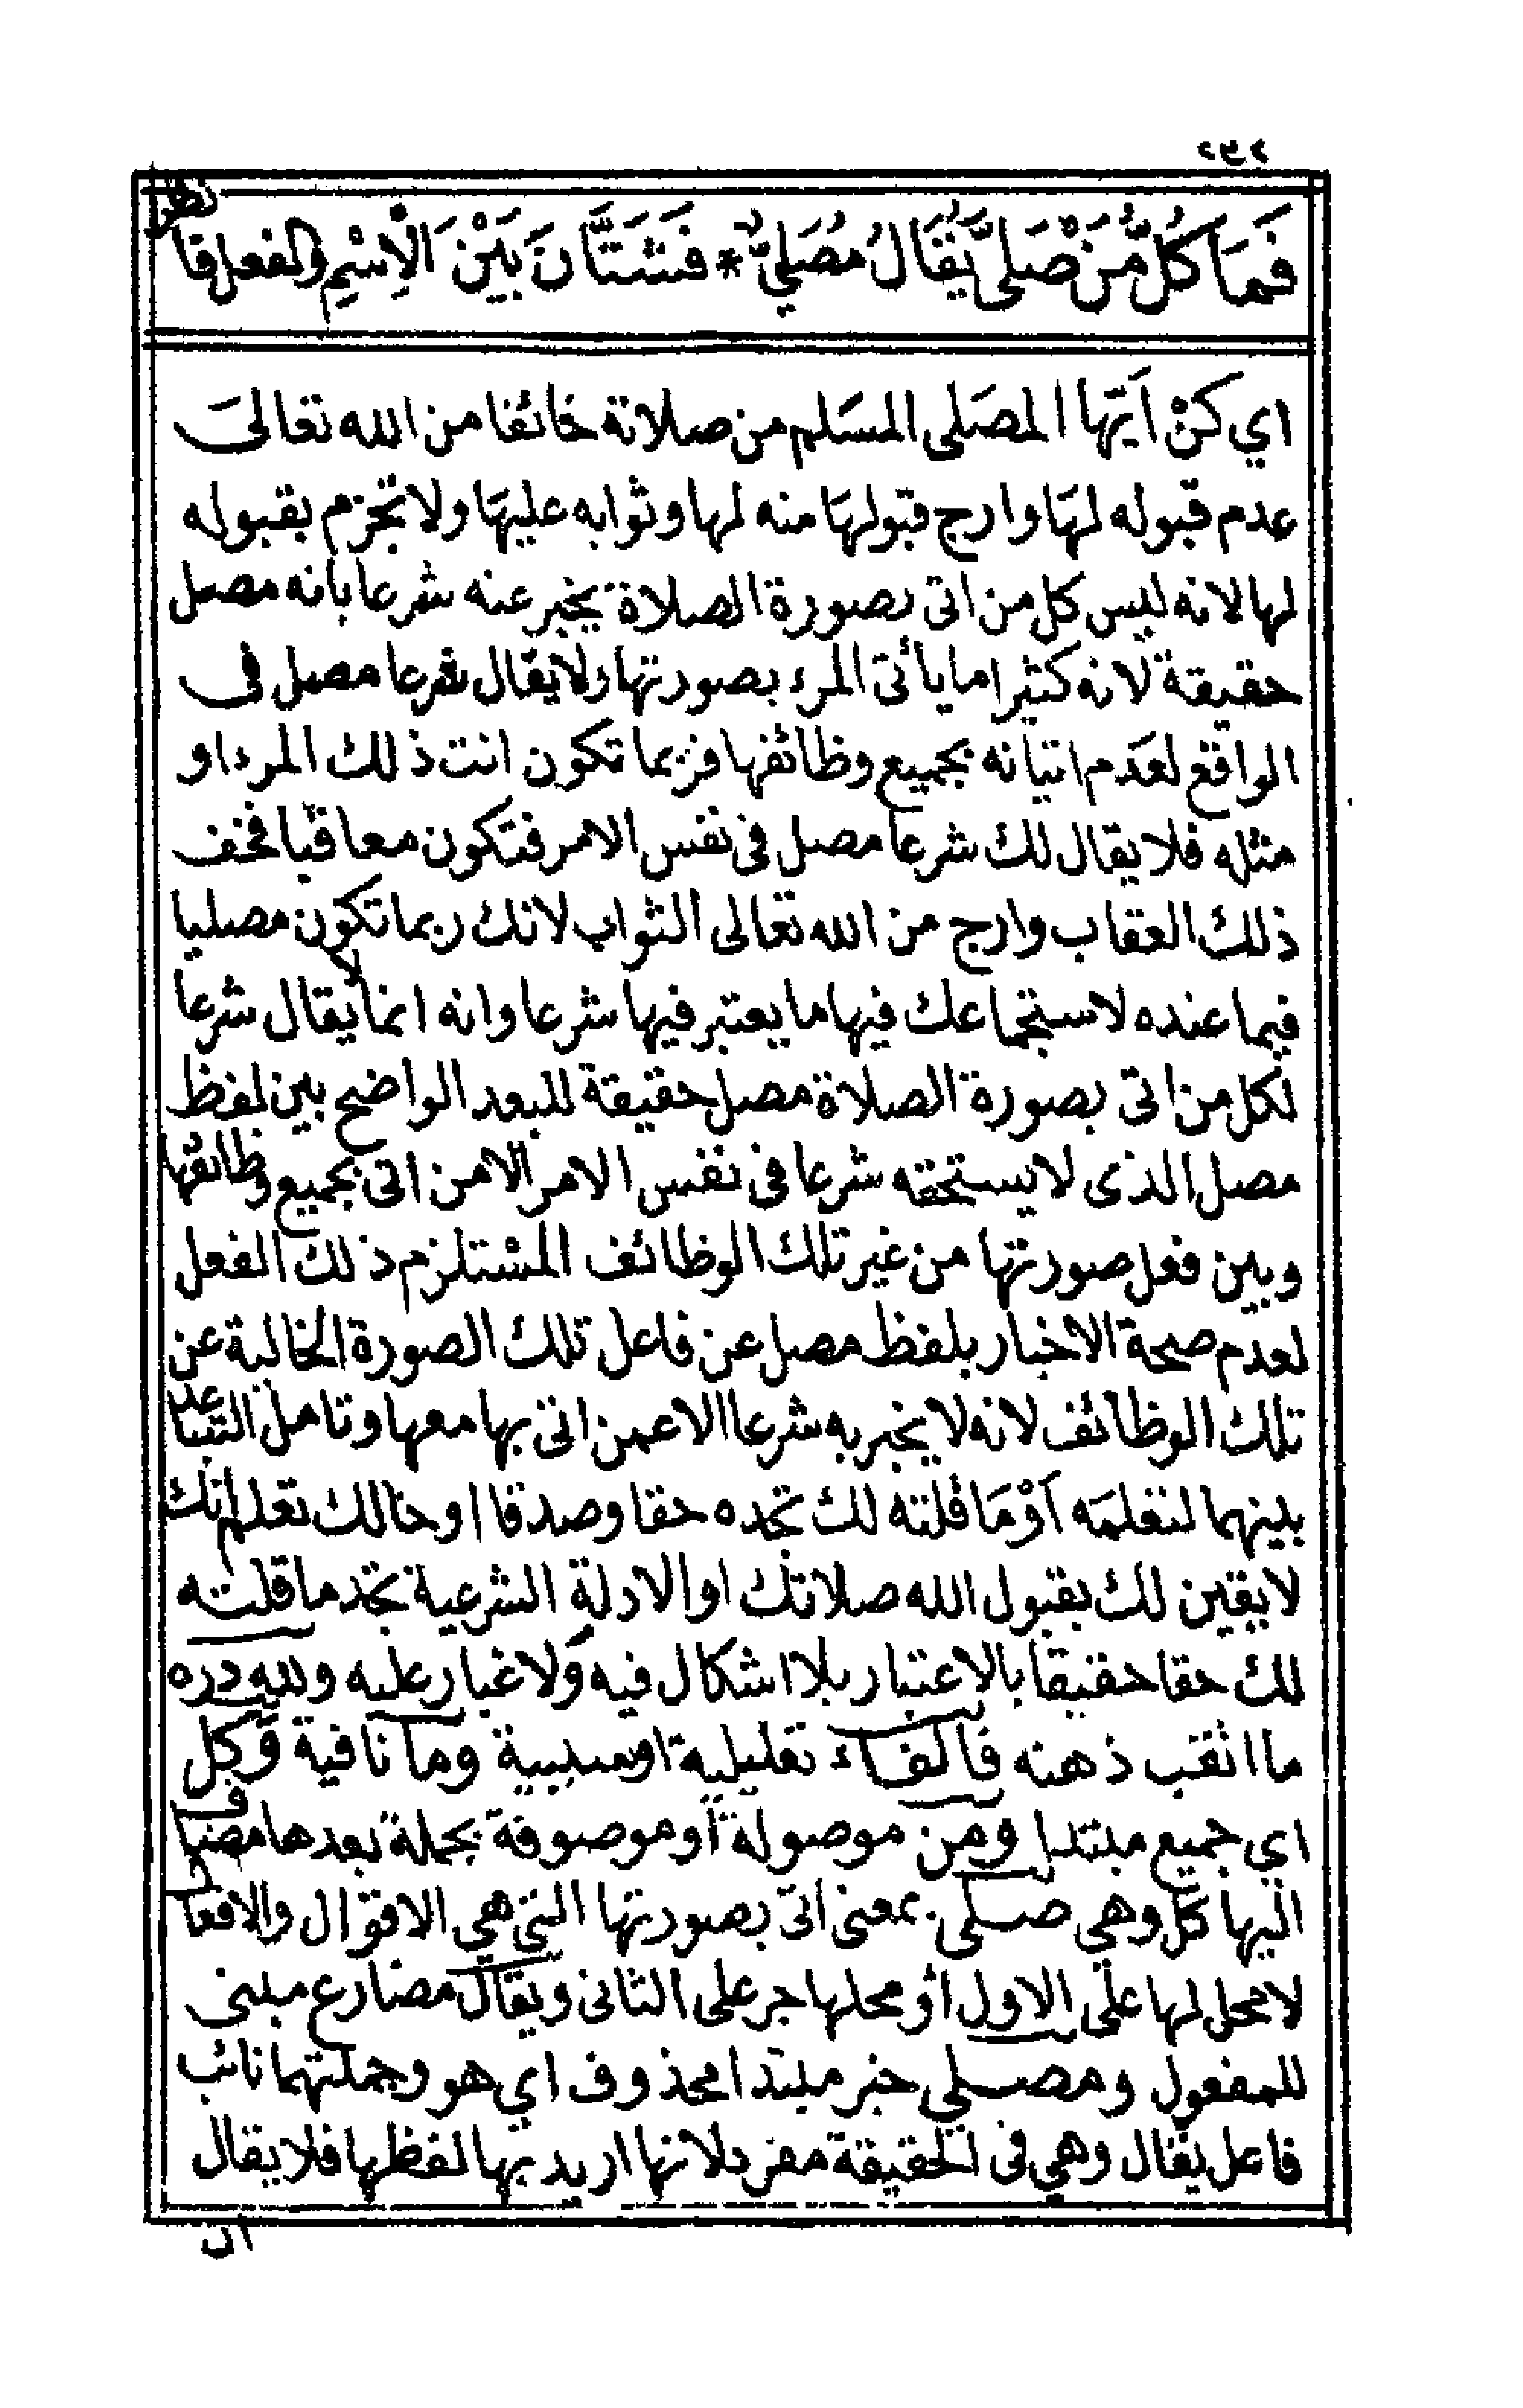 فَمَا كُلُّ مَنْ صَلَّى يُقَالُ مُصَلِّيٌ * فَشَتَّانَ بَيْنَ الْاِسْمِ والفعل فانظر
اي كن ايّها المصلى المسلم من صلاتة خائفا من الله تعالى
عدم قبوله لها وارج قبولها منه لها وثوابه عليها ولا تجزم بقبوله
لها لانه ليس كل من اتى بصورة الصلاة يخبر عنه شرعا بانه مصل
حقيقة لانه كثيرا ما يأتى المرء بصورتها ولا يقال شرعا مصل فى
الواقع لعدم اتيانه بجميع وظائفها فربما تكون انت ذلك المرء او
مثله فلا يقال لك شرعا مصل فى نفس الامر فتكون معاقبا فخف
ذلك العقاب وارج من الله تعالى الثواب لانك ربما تكون مصليا
فيما عنده لاستجماعك فيها ما يعتبر فيها شرعا وانه انما لا يقال شرعا
لكل من اتى بصورة الصلاة مصل حقيقة للبعد الواضح بين لفظ
مصل الذى لا يستحقه شرعا فى نفس الامر الا من اتى بجميع وظائفها
وبين فعل صورتها من غير تلك الوظائف المستلزم ذلك الفعل
لعدم صحة الاخبار بلفظ مصل عن فاعل تلك الصورة الخالية عن
تلك الوظائف لانه لا يخبر به شرعا الا عمن اتى بها معها وتامل التباعد
بينهما لتعلمه أوْ مَا قلته لك تجده حقا وصدقا او حالك تعلم انك
لا يقين لك بقبول الله صلاتك او الادلة الشرعية تجد ما قلته
لك حقا حقيقا بالاعتبار بلا اشكال فيه ولا غبار عليه ولله دره
ما اثقب ذهنه فالفاء تعليلية او سببية وما نافية وكل
اي جميع مبتدا ومن موصولة او موصوفة بجملة بعدها مضاف
اليها كل وهي صلى بمعنى اتى بصورتها التي هي الاقوال والافعال
لا محل لها على الاول او محلها جر على الثانى ويقال مضارع مبنى
للمفعول ومصلي خبر مبتدا محذوف اي هو وجملتهما نائب
فاعل يقال وهي فى الحقيقة مفرد لانها اريد بها لفظها فلا يقال